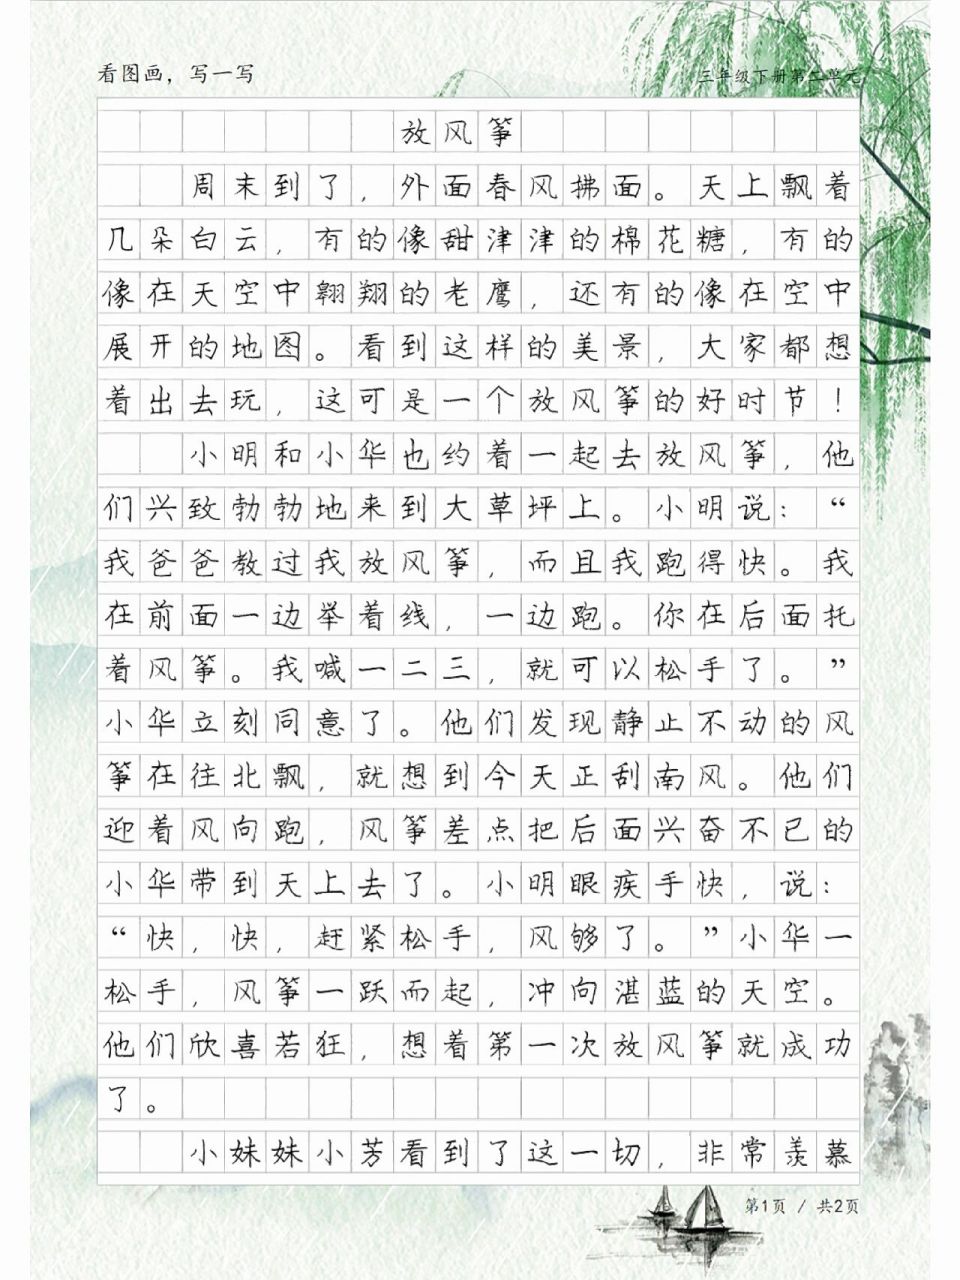 看图画，写一写
三年级下册第二单元
放风筝
周末到了，外面春风拂面。天上飘着
几朵白云，有的像甜津津的棉花糖，有的
像在天空中翱翔的老鹰，还有的像在空中
展开的地图。看到这样的美景，大家都想
着出去玩，这可是一个放风筝的好时节！
小明和小华也约着一起去放风筝，他
们兴致勃勃地来到大草坪上。小明说：“
我爸爸教过我放风筝，而且我跑得快。我
在前面一边举着线，一边跑。你在后面托
着风筝。我喊一二三，就可以松手了。”
小华立刻同意了。他们发现静止不动的风
筝在往北飘，就想到今天正刮南风。他们
迎着风向跑，风筝差点把后面兴奋不已的
小华带到天上去了。小明眼疾手快，说：
“快，快，赶紧松手，风够了。”小华一
松手，风筝一跃而起，冲向湛蓝的天空。
他们欣喜若狂，想着第一次放风筝就成功
了。
小妹妹小芳看到了这一切，非常羡慕
第1页 / 共2页